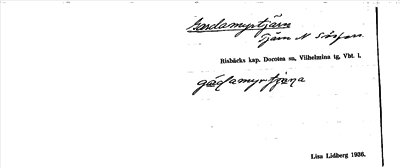 Gardamyrtjärn
Tjärn N Sörfors
Risbäcks kap. Dorotea sn, Vilhelmina tg, Vbt. l.
gáɖamyrtjäɳa
Lisa Lidberg 1936.